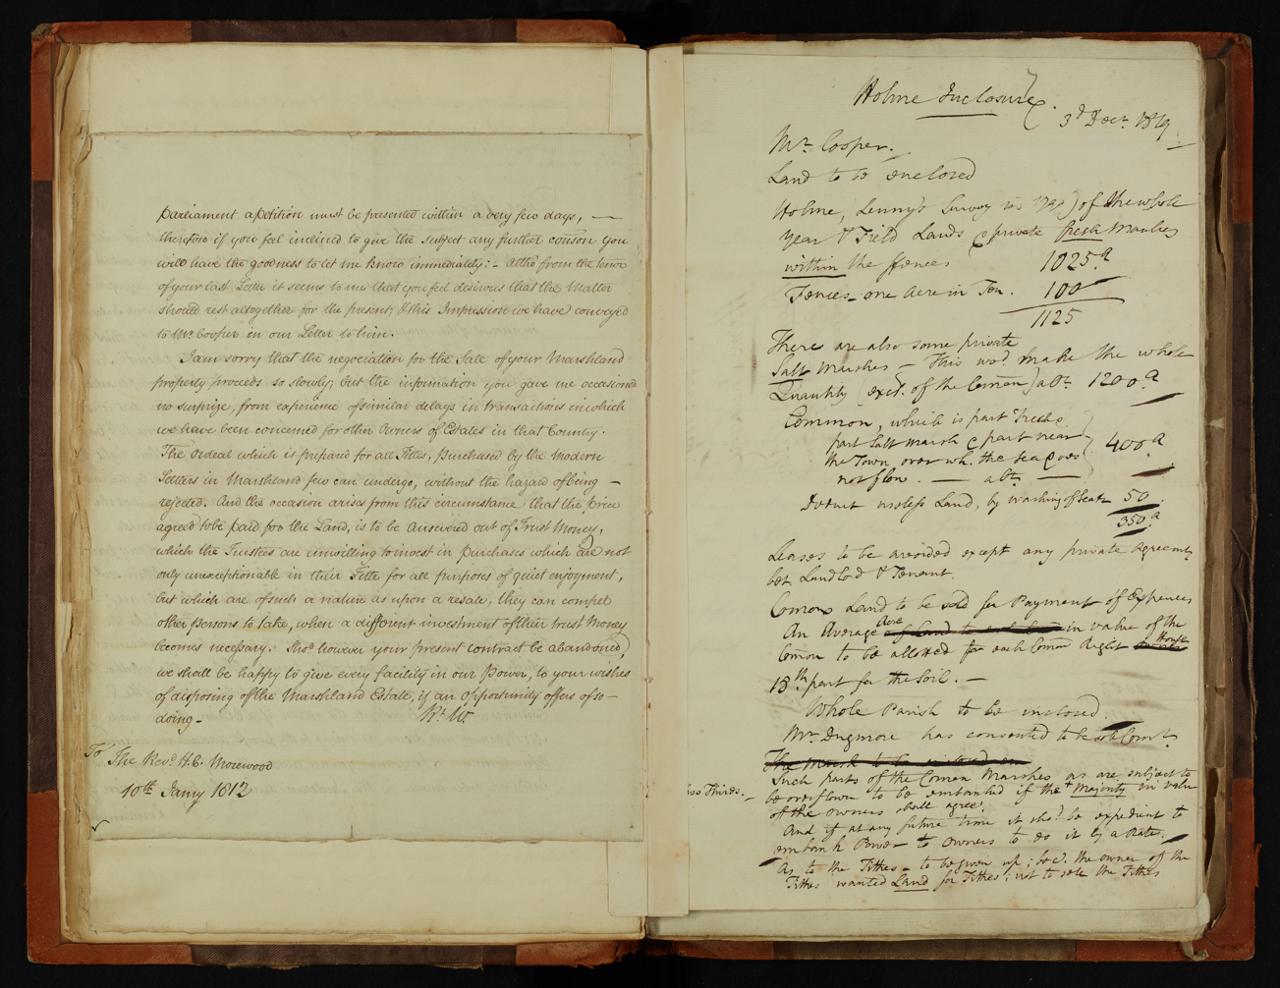 Parliament a Petition must be presented within a very few days, —
therefore if you feel inclined to give the subject any further conson you
will have the goodness to let me know immediately: - Altho' from the tenor
of your last Letter it seems to me that you feel desirous that the Matter
should rest altogether for the present; & this Impression we have conveyed
to Mr. Cooper in our Letter to him.
I am sorry that the negociation for the Sale of your Marshland
property proceeds so slowly; but the information you gave me occasioned
no surprize, from experience of similar delays in transactions in which
we have been concerned for other Owners of Estates in that Country.
The Ordeal which is prepared for all Titles, purchased by the Modern
Settlers in Marshland few can undergo, without the hazard of being —
rejected. And the occasion arises from this circumstance that the price
agreed to be paid for the Land, is to be answered out of Trust Money,
which the Trustees are unwilling to invest in purchases which are not
only unexceptionable in their Title for all purposes of quiet enjoyment,
but which are of such a nature as upon a resale, they can compel
other persons to take, when a different investment of their trust Money
becomes necessary. Tho' however your present contract be abandoned,
we shall be happy to give every facility in our Power, to your wishes
of disposing of the Marshland Estate, if an opportunity offers of so —
doing -
Rt. W.
To The Revd. H. C. Morewood
10th Jany 1812
Holme Inclosure.
3d Decr. 1819
Mr. Cooper.
Land to be enclosed
Holme, Lenny's Survey in ) of the whole
year & Field Lands & private fresh Marshes
within the fences 1025a
Fences - one Acre in Ten. 100
1125
There are also some private
Salt Marshes — This wod. make the whole
Quantity (exd. of the Comon) abt. 1200a
Common, which is part Fresh
part Salt Marsh & part near
the Town over wh. the Sea does
not flow. — abt. — 400a
Deduct useless Land, by washing of Sea &c 50
350a
Leases to be avoided except any private Agreemt.
bet Landlod & Tenant.
Comon Land to be sold for Payment of Expences
An Average Acre in value of the
Comon to be allotted for each Comon Right House
18th part for the Soil. —
Whole Parish to be inclosed.
Mr. Dugmore has consented to be sole Comr.
The marsh to be
Such parts of the Comon Marshes as are subject to
be overflown to be embanked if the + Majority in value
of the owners shall agree.
two Thirds. -
And if at any future time it shod. be expedient to
embank Power to owners to do it by a Rate.
As to the Tithes - to be given up; bec. the owner of the
Tithes wanted Land for Tithes; not to sell the Tithes